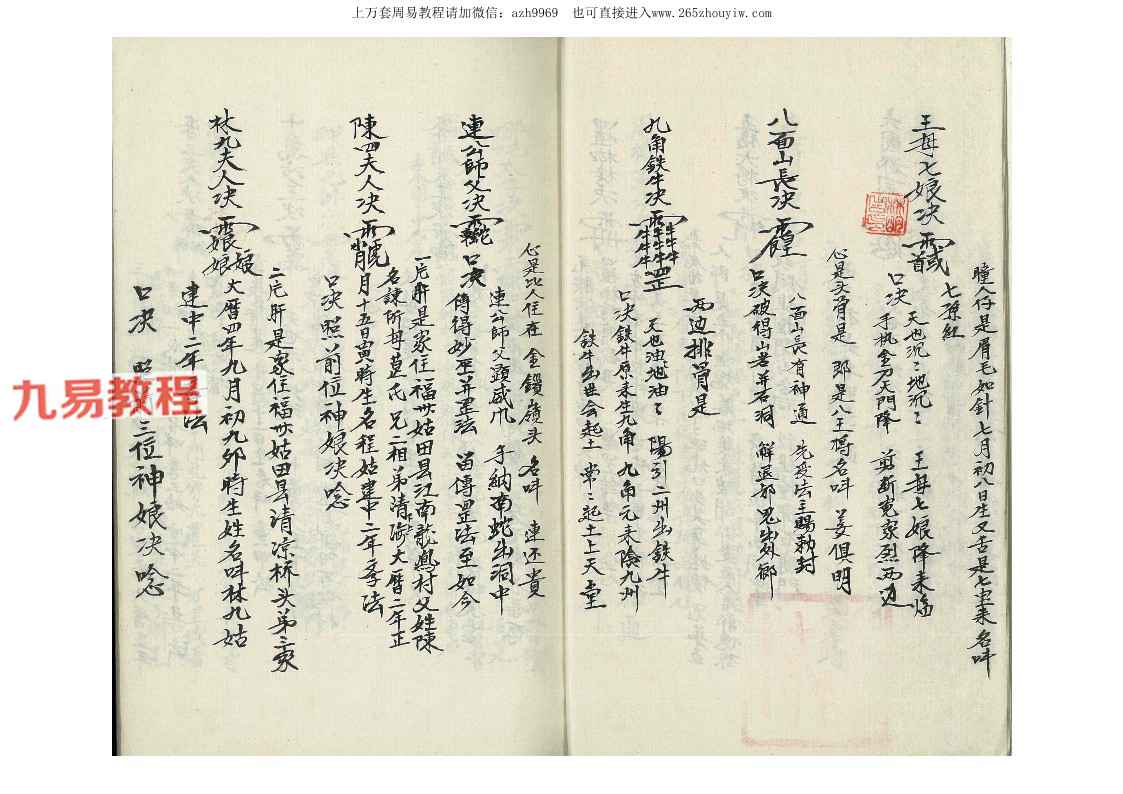 上万套周易教程请加微信：azh9969　也可直接进入www.265zhouyiw.com
瞳人仔是眉毛如針七月初八日生又舌是七宝来名叫
七孫紅
王母七娘决
口决 天也沉〻地沉〻 王母七娘降来临
手执金刀天門降 剪断冤家烈两边
心是头骨是 那是八王 名叫 姜俱明
八面山長决
八面山長有神通 先受法主賜勅封
口决破得山岩并石洞 解退邪鬼出外鄉
两边排骨是
九角鉄牛决
天也油地油〻 陽引二州出鉄牛
口决鉄牛原来生九角 九角元来陰九州
鉄牛出世会起土 常〻起土上天堂
心是比人住在 金鎖嶺头 名叫 連还貴
連公師父决
口决
連公師父顕威 手納南蛇出洞中
傳得妙 并罡法 留傳罡法至如今
一庀肝是家住福州姑田县江南龍鳳村父姓陳
名諫所母葛氏兄二相弟清海大曆二年正
陳四夫人决
月十五日寅時生名程姑建中二年 法
口决照前位神娘决唸
二庀肝是家住福州姑田县清凉桥头弟三家
林九夫人决
大曆四年九月初九卯時生姓名叫林九姑
建中二年 法
口决 三位神娘决唸
九易教程